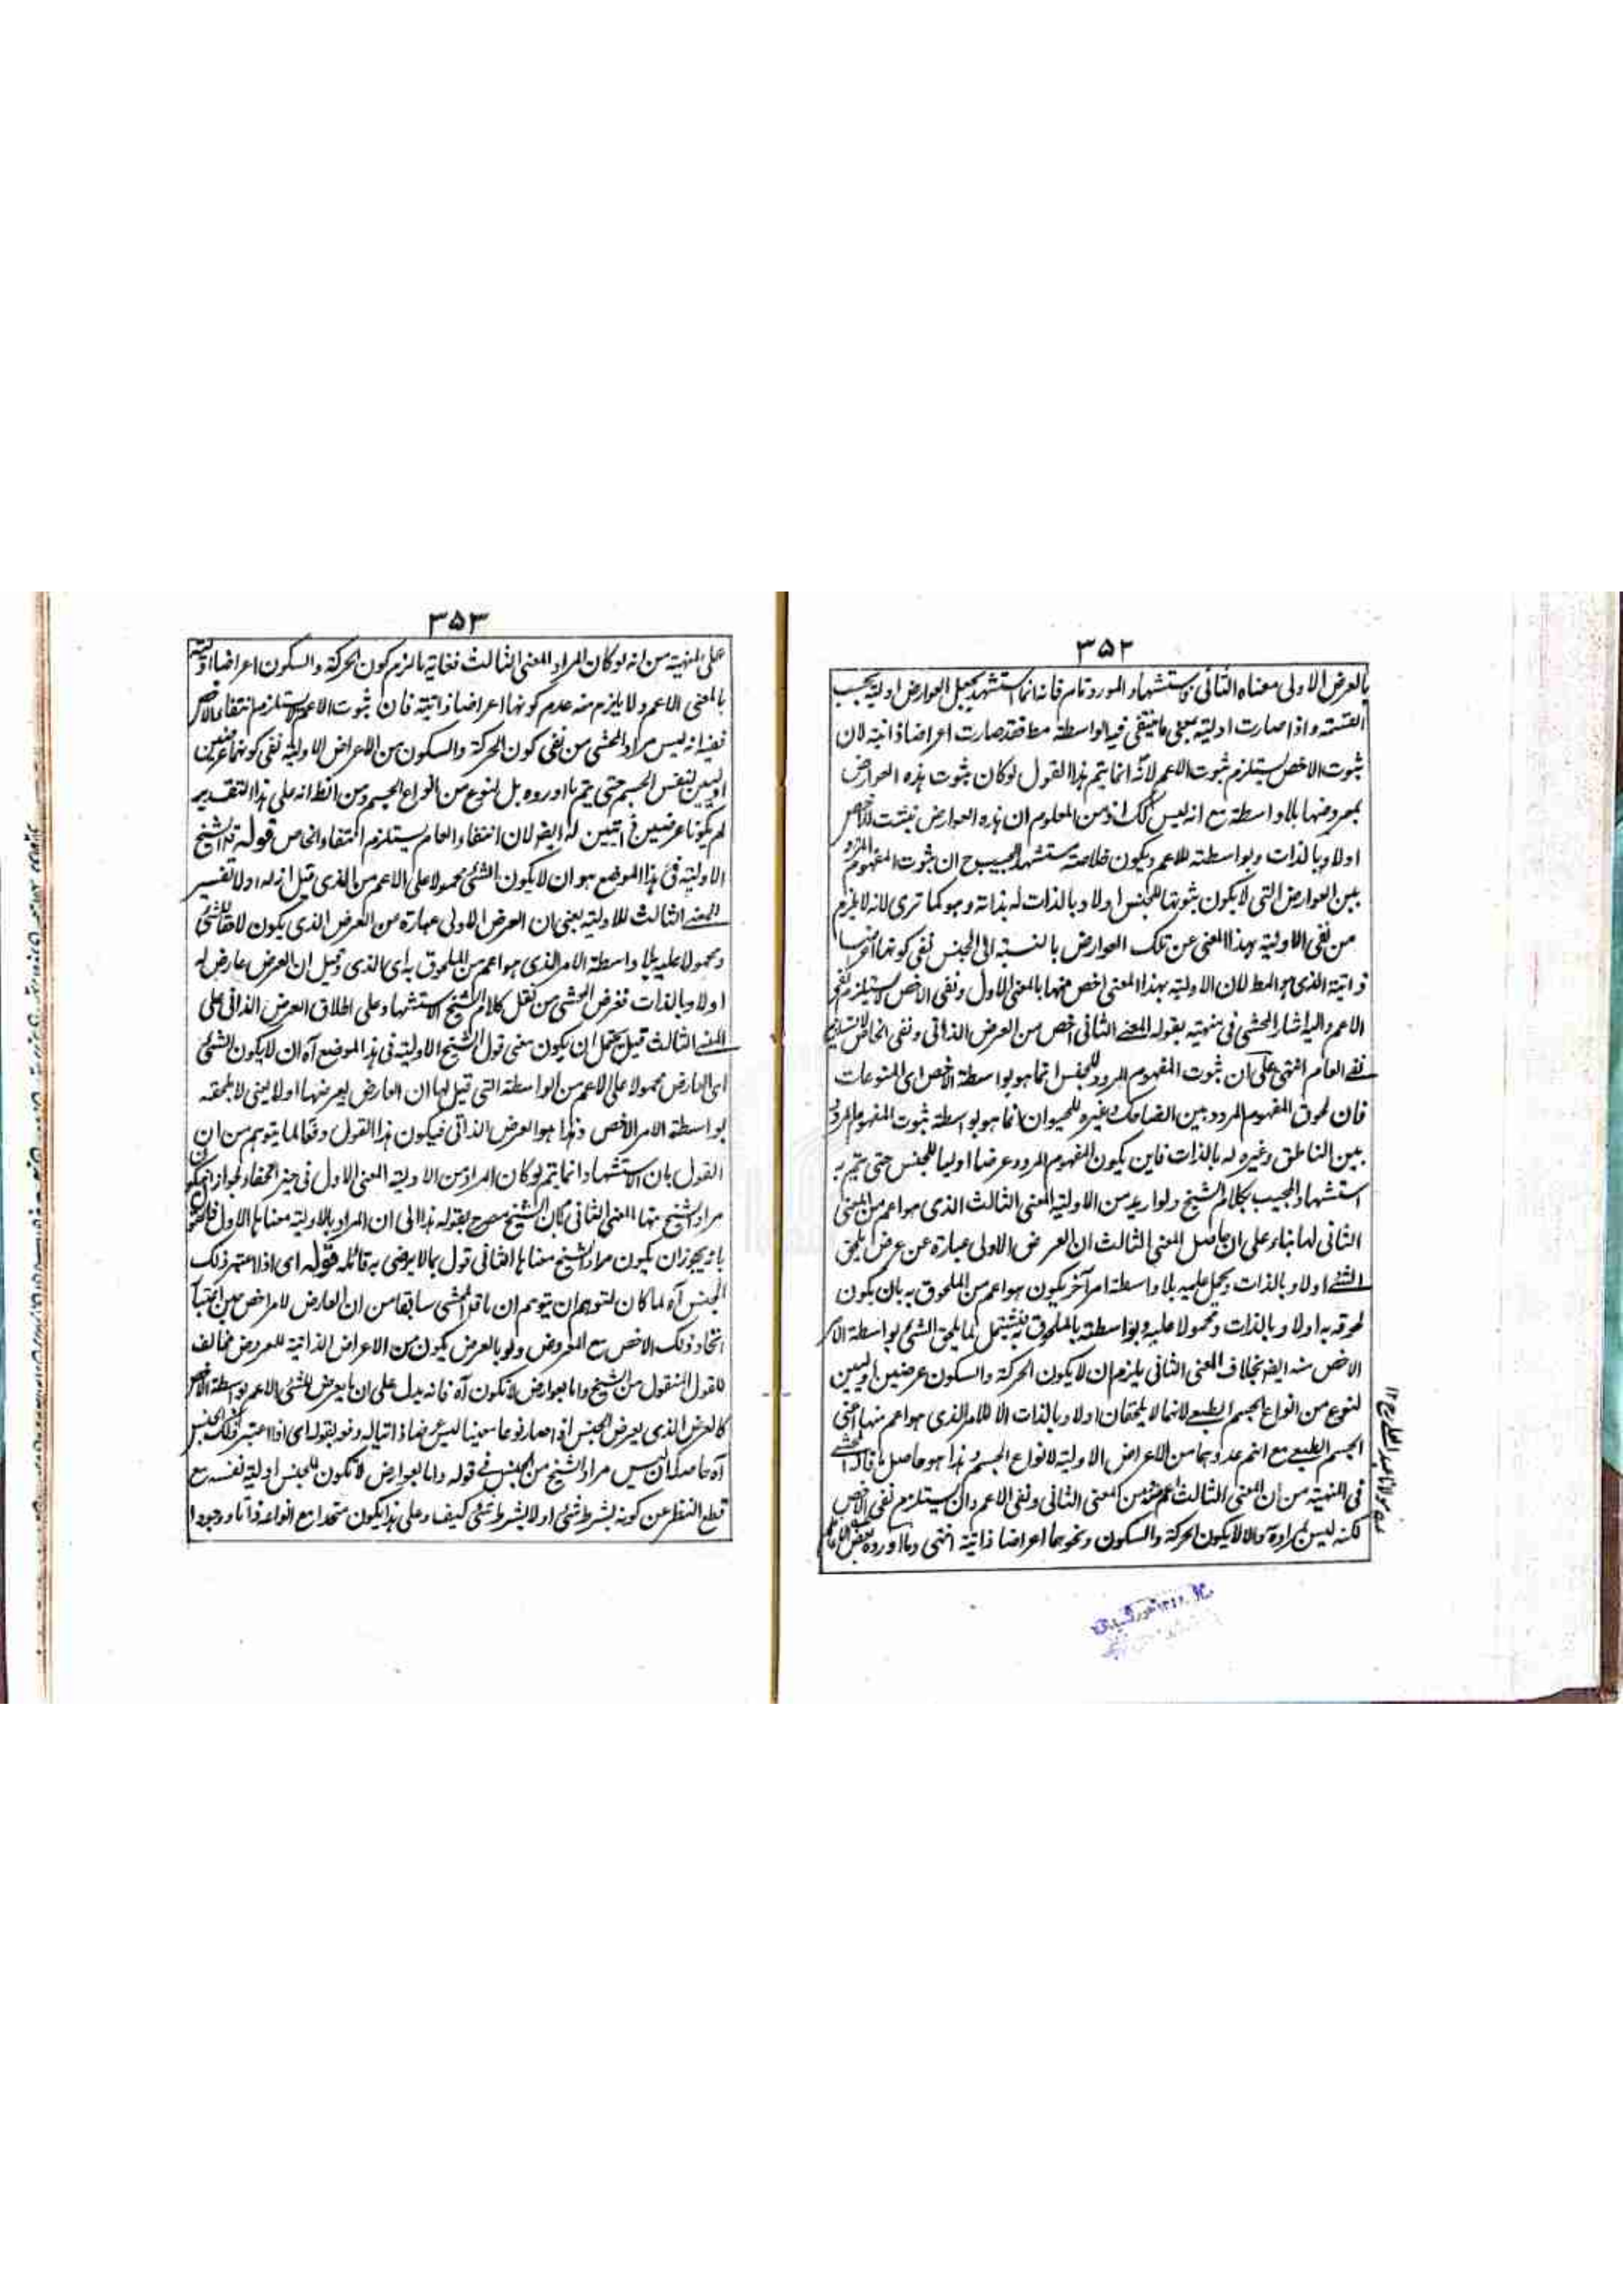 ٣٥٢
بالعرض الاولى معناه الثانى استشهاد المورد تام فانه انما استشهد بجعل العوارض اولية بحسب
القسمة واذا صارت اولية بمعنى ما ينتفى فيه الواسطة مط فقد صارت اعراضا ذاتية لان
ثبوت الاخص يستلزم ثبوت الاعم لانه انما يتم هذا القول لو كان ثبوت هذه العوارض
بمعروضها بلا واسطة مع انه ليس كك اذ من المعلوم ان هذه العوارض تثبت للاخص
اولا وبالذات وبواسطته للاعم ويكون خلاصة استشهاد المجيب ح ان ثبوت المفهوم المردد
بين العوارض التى لا يكون ثبوتها للجنس اولا وبالذات له بذاته وهو كما ترى لانه لا يلزم
من نفى الاولية بهذا المعنى عن تلك العوارض بالنسبة الى الجنس نفى كونها اعراضا
ذاتية الذى هو المط لان الاولية بهذا المعنى اخص منها بالمعنى الاول ونفى الاخص لا يستلزم نفى
الاعم واليه اشار المحشى فى منهيته بقوله المعنى الثانى اخص من العرض الذاتى ونفى الخاص لا يستلزم
نفى العام انتهى على ان ثبوت المفهوم المردد للجنس انما هو بواسطة الاخص اى المنوعات
فان لحوق المفهوم المردد بين الضاحك وغيره للحيوان انما هو بواسطة ثبوت المفهوم المردد
بين الناطق وغيره له بالذات فاين يكون المفهوم المردد عرضا اوليا للجنس حتى يتم به
استشهاد المجيب بكلام الشيخ ولو اريد من الاولية المعنى الثالث الذى هو اعم من المعنى
الثانى لها بناء على ان حاصل المعنى الثالث ان العرض الاولى عبارة عن عرض يلحق
الشئ اولا وبالذات ويحمل عليه بلا واسطة امر آخر يكون هو اعم من الملحوق به بان يكون
لحوقه به اولا وبالذات ومحمولا عليه وبواسطته بالملحوق به فيشتمل لما يلحق الشئ بواسطة الامر
الاخص منه ايضا بخلاف المعنى الثانى يلزم ان لا يكون الحركة والسكون عرضين اوليين
لنوع من انواع الجسم الطبيعى لانهما لا يلحقان اولا وبالذات الا للامر الذى هو اعم منها اعنى
الجسم الطبيعى مع انهم عدوهما من الاعراض الاولية لانواع الجسم وهذا هو حاصل ما قاله المحشى
فى المنهية من ان المعنى الثالث اعم من المعنى الثانى ونفى الاعم وان يستلزم نفى الاخص
لكنه ليس بمراد والا لا يكون الحركة والسكون ونحوهما اعراضا ذاتية انتهى وما اورده بعض الاعاظم
عه مولانا عبد العلى رح ١٢
٣٥٣
على المنهية من انه لو كان المراد المعنى الثالث فغاية ما لزم كون الحركة والسكون اعراضا اولية
بالمعنى الاعم ولا يلزم منه عدم كونها اعراضا ذاتية فان ثبوت الاعم لا يستلزم انتفاء الاخص
ففيه انه ليس مراد المحشى من نفى كون الحركة والسكون من الاعراض الاولية نفى كونهما عرضين
اوليين لنفس الجسم حتى يتم ما اورده بل لنوع من انواع الجسم ومن الظ انه على هذا التقدير
لم يكونا عرضين ذاتيين له ايضا لان انتفاء العام يستلزم انتفاء الخاص قوله قد الشيخ
الاولية فى هذا الموضع هو ان لا يكون الشئ محمولا على الاعم من الذى قيل انه له اولا تفسير
للمعنى الثالث للاولية يعنى ان العرض الاولى عبارة من العرض الذى يكون لاحقا للشئ
ومحمولا عليه بلا واسطة الامر الذى هو اعم من الملحوق به اى الذى وقيل ان العرض عارض له
اولا وبالذات فغرض المحشى من نقل كلام الشيخ الاستشهاد على اطلاق العرض الذاتى على
المعنى الثالث قيل يحتمل ان يكون معنى قول الشيخ الاولية فى هذا الموضع آه ان لا يكون الشئ
اى العارض محمولا على الاعم من الواسطة التى قيل لها ان العارض يعرضها اولا يعنى لا يلحقه
بواسطة الامر الاخص وهذا هو العرض الذاتى فيكون هذا القول دفعا لما يتوهم من ان
القول بان الاستشهاد انما يتم لو كان المراد من الاولية المعنى الاول فى حيز الخفاء لجواز ان يكون
مراد الشيخ منها المعنى الثانى كان الشيخ مصرح بقوله هذا الى ان المراد بالاولية معناها الاول فالقول
بانه يجوز ان يكون مراد الشيخ معناها الثانى قول بما لا يرضى به قائله قوله اى اذا اعتبر ذلك
الجنس آه لما كان لمتوهم ان يتوهم ان ما قال المحشى سابقا من ان العارض لامر اخص
اتحاد ذلك الاخص مع المعروض ولو بالعرض يكون من الاعراض الذاتية للمعروض مخالف
للقول المنقول من الشيخ واما بعوارض لا تكون آه فانه يدل على ان ما يعرض للشئ الاعم بواسطة الاخص
كالعرض الذى يعرض الجنس اذا صار نوعا معينا ليس عرضا ذاتيا له دفعه بقوله اى اذا اعتبر ذلك الجنس
آه حاصله ان ليس مراد الشيخ من الجنس فى قوله واما بعوارض لا تكون للجنس اولية نفسه مع
قطع النظر عن كونه بشرط شئ او لا بشرط شئ كيف وعلى هذا يكون متحدا مع انواعه ذاتا ووجودا